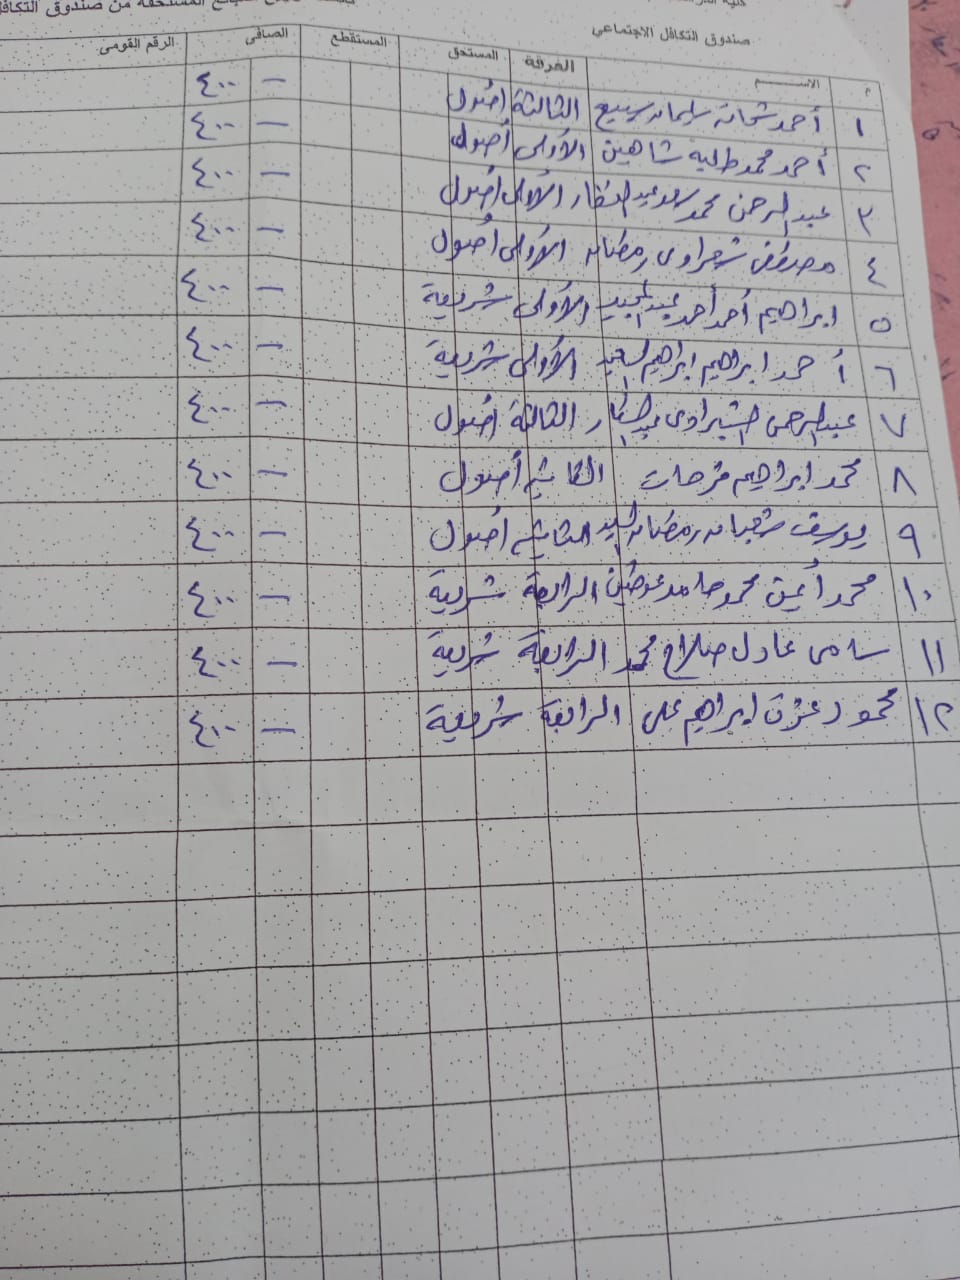 صندوق التكافل الاجتماعي
م الاســـــم الفرقة المستحق المستقطع الصافى الرقم القومى
١ أحمد شحاته سليمان ربيع الثالثة أصول — ٤٠٠
٢ أحمد محمد طلبه شاهين الأولى أصول — ٤٠٠
٣ عبد الرحمن محمد سعد عبد الغفار الأولى أصول — ٤٠٠
٤ مصطفى شعراوى رمضان الأولى أصول — ٤٠٠
٥ ابراهيم أحمد أحمد عبد المجيد الأولى شريعة — ٤٠٠
٦ أحمد ابراهيم ابراهيم السعيد الأولى شريعة — ٤٠٠
٧ عبد الرحمن الشبراوى عبد الستار الثالثة أصول — ٤٠٠
٨ محمد ابراهيم فرحات الثانية أصول — ٤٠٠
٩ يوسف شعبان رمضان السيد الثانية أصول — ٤٠٠
١٠ محمد أيمن محمد حامد عوضين الرابعة شريعة — ٤٠٠
١١ سامى عادل صلاح محمد الرابعة شريعة — ٤٠٠
١٢ محمود عزت ابراهيم على الرابعة شريعة — ٤٠٠